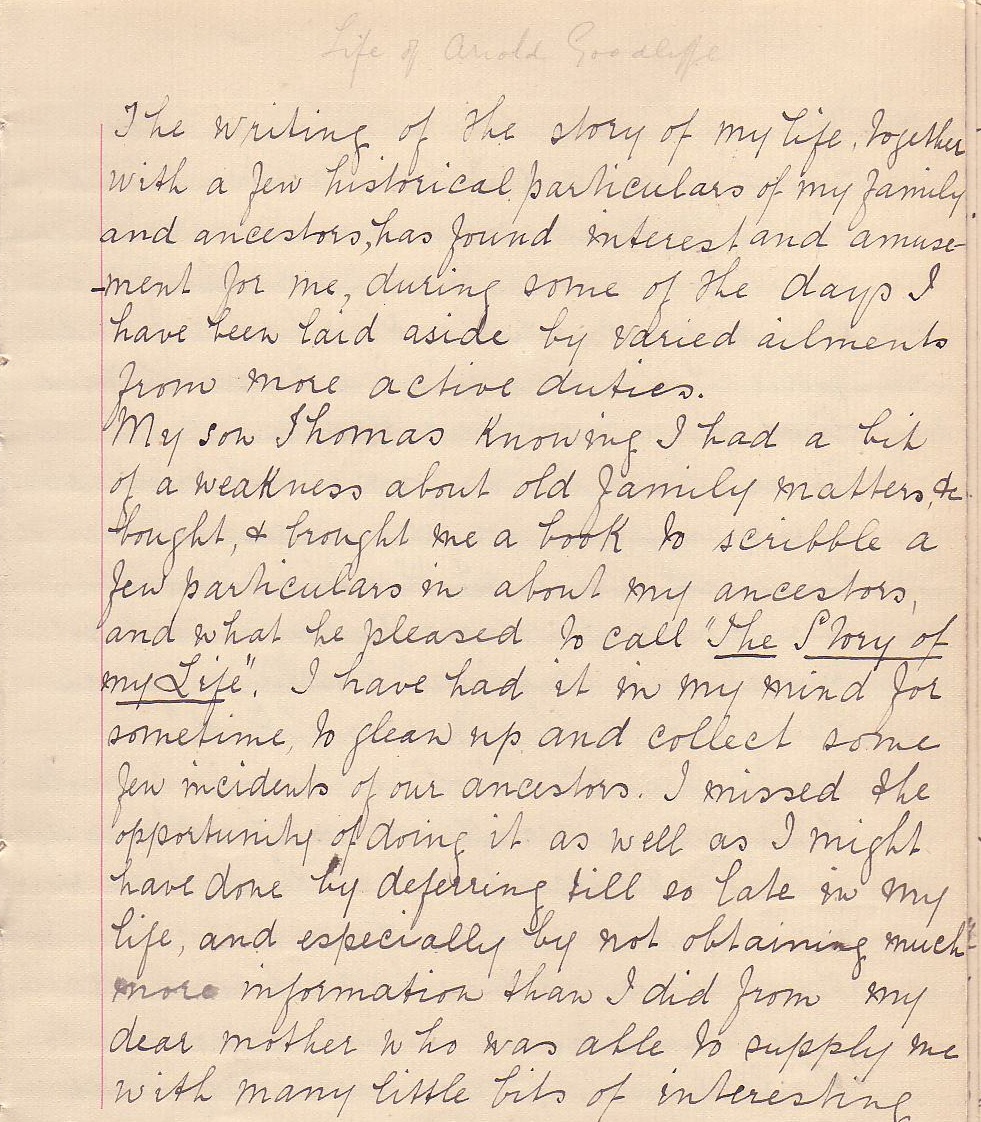 Life of Arnold Goodliffe
The writing of the story of my life, together
with a few historical particulars of my family
and ancestors, has found interest and amuse-
-ment for me, during some of the days I
have been laid aside by varied ailments
from more active duties.
My son Thomas knowing I had a bit
of a weakness about old family matters, &c
bought, & brought me a book to scribble a
few particulars in about my ancestors,
and what he pleased to call "The Story of
my Life". I have had it in my mind for
sometime, to glean up and collect some
few incidents of our ancestors. I missed the
opportunity of doing it as well as I might
have done by deferring till so late in my
life, and especially by not obtaining much
more information than I did from my
dear mother who was able to supply me
with many little bits of interesting